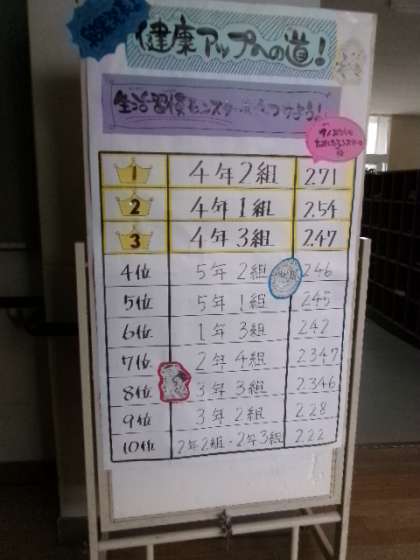 健康アップへの道!
生活習慣モンスターをやっつけよう!
1 4年2組 2.71
2 4年1組 2.54
3 4年3組 2.47
4位 5年2組 2.46
5位 5年1組 2.45
6位 1年3組 2.42
7位 2年4組 2.347
8位 3年3組 2.346
9位 3年2組 2.28
10位 2年2組・2年3組 2.22